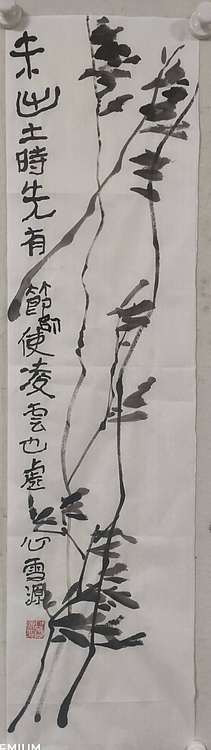 未出土時先有節即使凌雲也虛心雪源
EMIUM